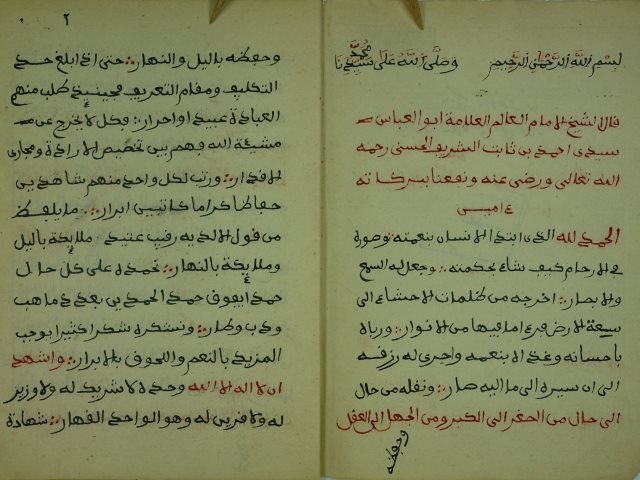 بسم الله الرحمن الرحيم وصلى الله على سيدنا محمد
قال الشيخ الامام العالم العلامة ابو العباس
سيدى احمد بن ثابت الشريف الحسنى رحمه
الله تعالى ورضى عنه ونفعنا ببركاته
ءامين
الحمد لله الذى ابتدا الانسان بنعمته وصوره
فى الارحام كيف شاء بحكمته وجعل له السمع
والابصار اخرجه من ظلمات الاحشاء الى
سعة الارض فرءا ما فيها من الانوار ورباه
باحسانه وغذاه بنعمه واجرى له رزقه
الى ان سيره الى ما اليه صار ونقله من حال
الى حال من الصغر الى الكبر ومن الجهل الى العقل
وحفظه
٢
وحفظه باليل والنهار حتى اذا بلغ حد
التكليف ومقام التعريف طلب منهم
العبادة عبيدا واحرار وكل لا يخرج عن
مشيئة الله فهم بين تخصيص الارادة ومجارى
الاقدار ورتب لكل واحد منهم شاهدين
حفاظا كراما كاتبين ابرار ما يلفظ
من قول الا لديه رقيب عتيد ملايكة باليل
وملايكة بالنهار نحمده على كل حال
حمدا يفوق حمد الحامدين بعدد ما هب
ودب وطار ونشكره شكرا كثيرا يوجب
المزيد بالنعم واللحوق بالابرار واشهد
ان لا اله الا الله وحده لا شريك له ولا وزير
له ولا قرين له وهو الواحد القهار شهادة